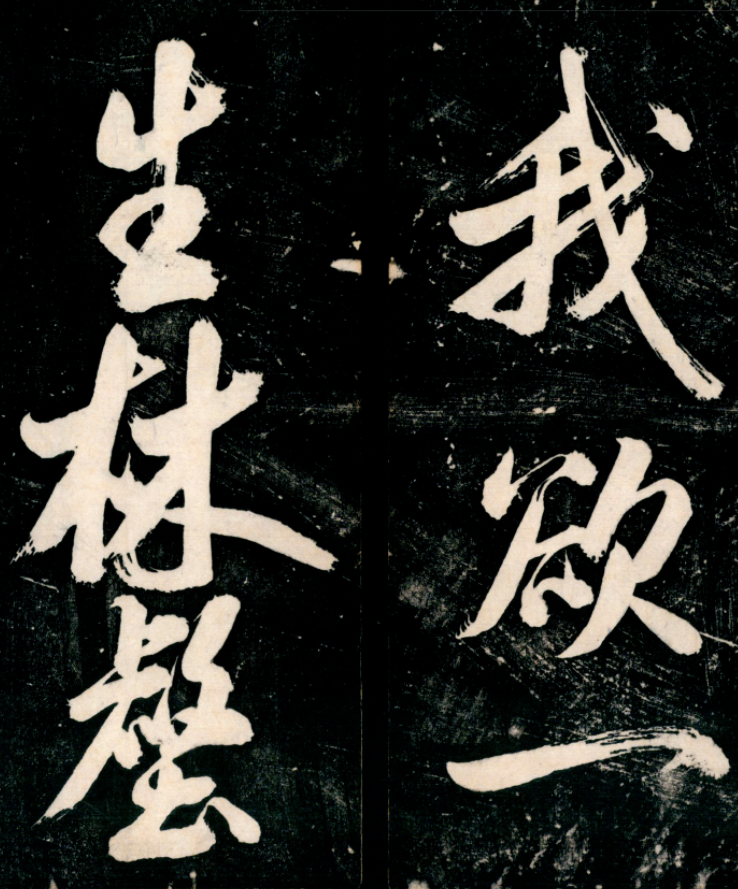 我欲一
生林壑